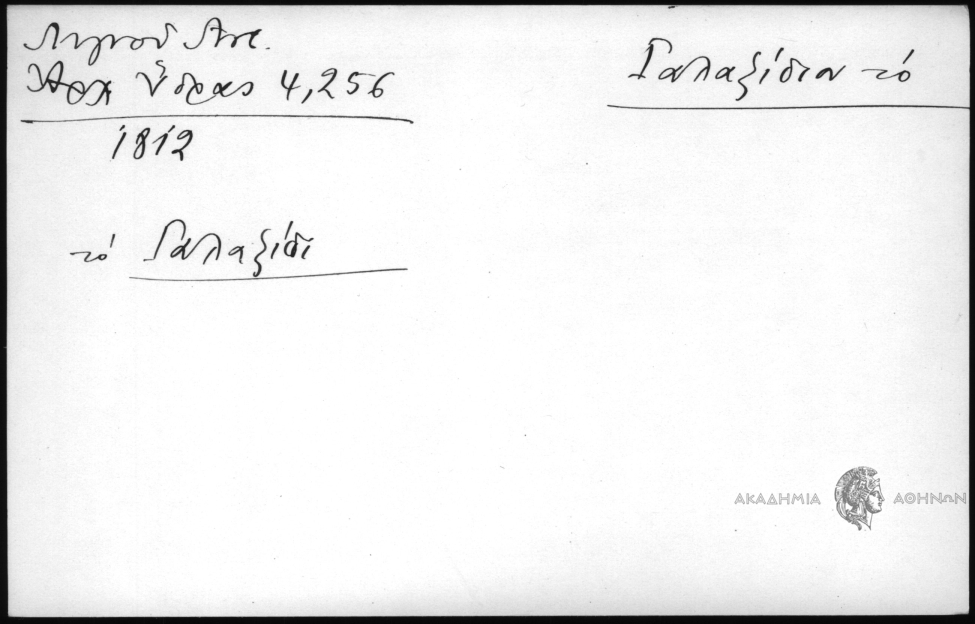 Λιγνού Αντ.
Ἀρχ Ὕδρας 4,256
1812
Γαλαξίδιον τό
τό Γαλαξίδι
ΑΚΑΔΗΜΙΑ ΑΘΗΝΩΝ